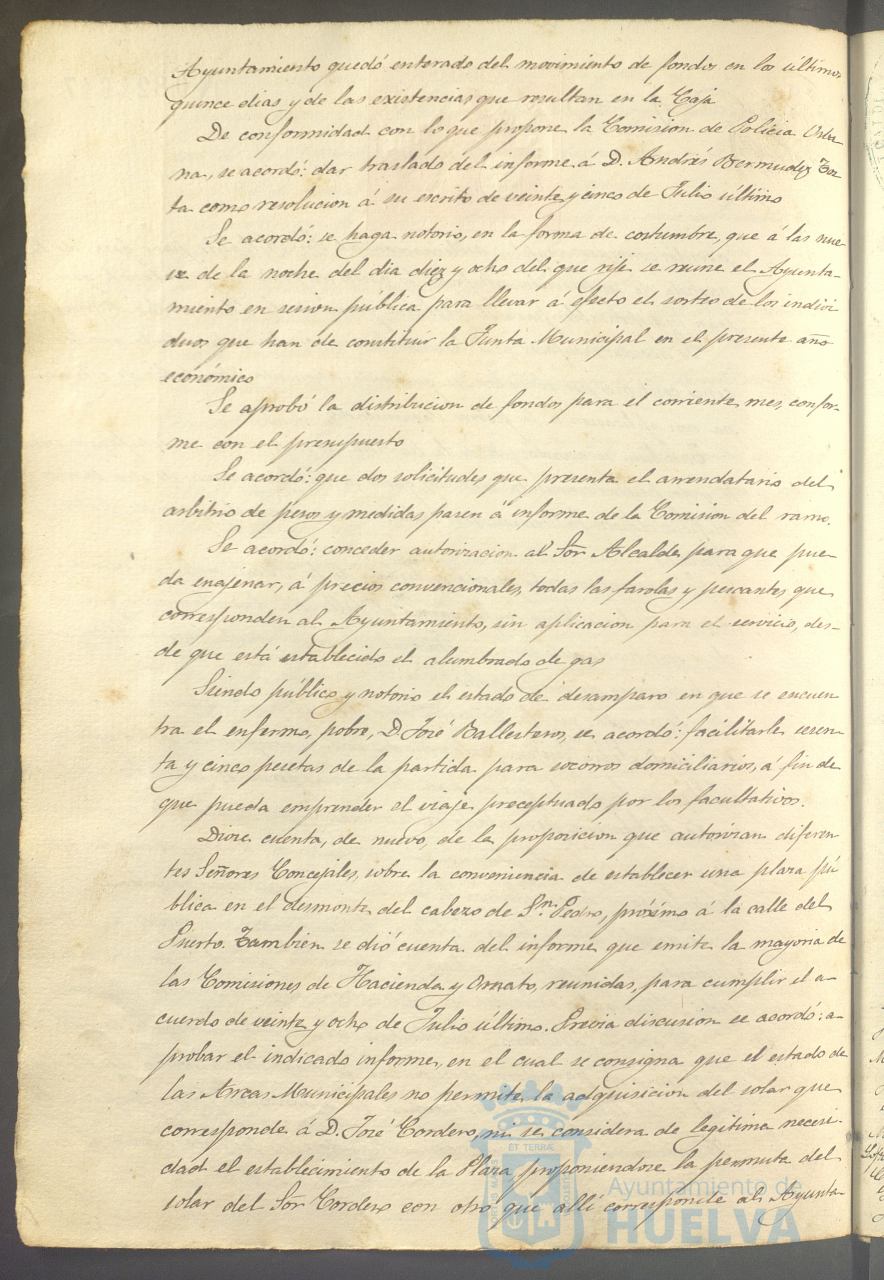 Ayuntamiento quedó enterado del movimiento de fondos en los últimos
quince dias y de las existencias que resultan en la Caja
De conformidad con lo que propone la Comision de Policia Urba
na, se acordó: dar traslado del informe á D. Andrés Bermudez Tor
ta como resolucion á su escrito de veinte y cinco de Julio último
Se acordó: se haga notorio, en la forma de costumbre, que á las nue
ve de la noche del dia diez y ocho del que rije se reune el Ayunta-
miento en sesion pública para llevar á efecto el sorteo de los indivi
duos que han de constituir la Junta Municipal en el presente año
económico
Se aprobó la distribucion de fondos para el corriente mes, confor-
me con el presupuesto
Se acordó: que dos solicitudes que presenta el arrendatario del
arbitrio de pesos y medidas pasen á informe de la Comision del ramo.
Se acordó: conceder autorizacion al Sor Alcalde, para que pue-
da enajenar, á precios convencionales, todas las farolas y pescantes que
corresponden al Ayuntamiento, sin aplicacion para el servicio, des-
de que está establecido el alumbrado de gas
Siendo público y notorio el estado de desamparo en que se encuen
tra el enfermo, pobre, D. José Ballesteros, se acordó: facilitarle sesen-
ta y cinco pesetas de la partida para socorros domiciliarios, á fin de
que pueda emprender el viaje preceptuado por los facultativos.
Diose cuenta, de nuevo, de la proposicion que autorizan diferen
tes Señores Concejales, sobre la conveniencia de establecer una plaza pú
blica en el desmonte del cabezo de Sn. Pedro, próximo á la calle del
Puerto. Tambien se dió cuenta del informe que emite la mayoria de
las Comisiones de Hacienda y Ornato, reunidas, para cumplir el a-
cuerdo de veinte y ocho de Julio último. Previa discusion se acordó: a-
probar el indicado informe, en el cual se consigna que el estado de
las Arcas Municipales no permite la adquisicion del solar que
corresponde á D. José Cordero, ni se considera de legitima necesi-
dad el establecimiento de la Plaza proponiendose la permuta del
solar del Sor Cordero con otro que allí corresponde al Ayunta-
Ayuntamiento de
HUELVA